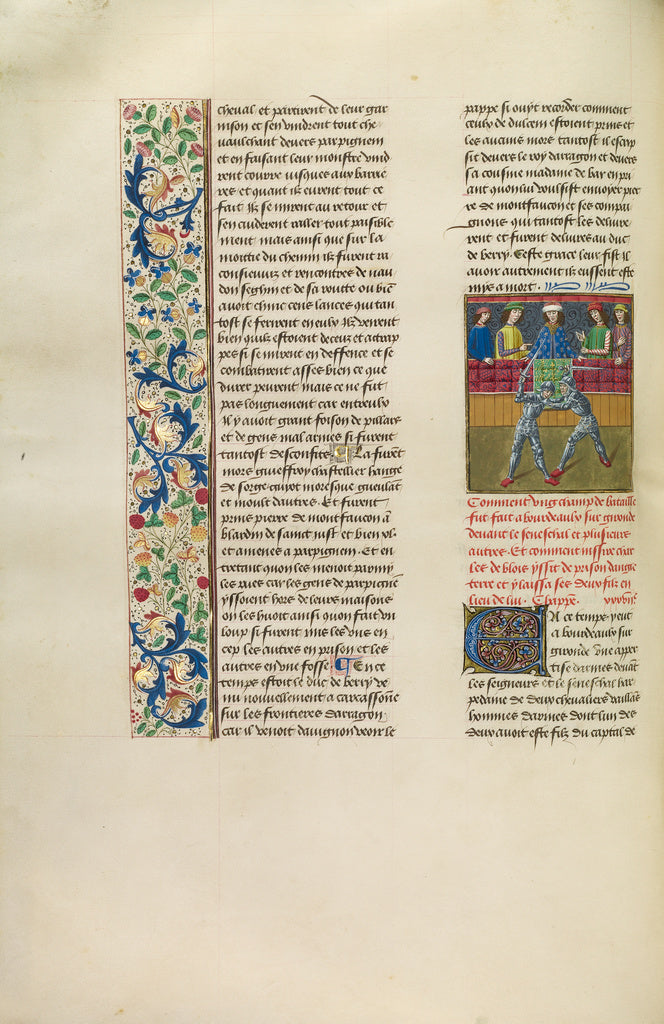 cheval et partirent de leur gar
nison et sen vindrent tout che
vaulchant devers parpignem
et en faisant leur monstre vind
rent courre iusques aux barrie
res et quant ilz eurent tout ce
fait ilz se mirent au retour et
sen cuiderent raller tout paisible
ment mais ainsi que sur la
moittie du chemin ilz furent ra
consieuiz et rencontres de nau
don seghin et de sa routte ou bien
avoit chinc cens lances qui tan
tost se ferirent en eulx Ilz veirent
bien quilz estoient deceuz et attrap
pes si se mirent en deffence et se
combatirent asses bien ce que
durer peurent mais ce ne fut
pas longuement car entreulx
il y avoit grant foison de pillars
et de gens mal armes si furent
tantost desconfis La furent
mors gieuffroy chastellier hange
de sorge guiot moresque gueulant
et moult dautres Et furent
prins pierre de montfaucon a
blardin de sainct iust et bien
et amenes a parpignem Et en
entrant quon les menoit parmy
les rues car les gens de parpignen
yssoient hors de leurs maisons
on les huoit ainsi quon fait un
loup si furent mis les uns en
cep les autres en prison et les
autres en une fosse En ce
temps estoit le duc de berry ve
nu nouvellement a carcassonne
sur les frontieres darragon
car il venoit davignon veoir le
pappe si ouyt recorder comment
ceulx de dulcem estoient prins et
les aucuns mors tantost il escrip
sit devers le roy darragon et devers
sa cousine madame de bar en pri
ant quon lui voulsist envoyer pier
re de montfaucon et ses compai
gnons qui tantost les delivre
rent et furent delivres au duc
de berry Ceste grace leur fist il
avoir autrement ilz eussent este
mys a mort
Comment ung champ de bataille
fut fait a bourdeaulx sur gironde
devant le seneschal et plusieurs
autres Et comment missire char
les de blois yssit de prison dangle
terre et y laissa ses deux filz en
lieu de lui Chappre
En ce temps veut
a bourdeaulx sur
gironde une apper
tise darmes devant
les seigneurs et le seneschal har
pedanne de deux chevaliers vaillans
hommes darmes dont lun des
deux avoit este filz du captal de